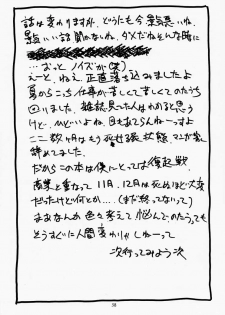 話は変わりますが、どうにも今景気悪いね。
景気いい話聞かないね、ダメだねそんな時に
…おっとノイズが(笑)
えーと、ねえ、正直落ち込みましたよ
夏からこっち仕事が苦しくて苦しくてのたうち
回りました。雑誌見てた人はわかると思う
けど…ひど…いよね。目もあてらんねーっす
ここ数ヶ月はもう死せる状態 マンガ家
辞めてました。
だからこの本は僕にとっては復活戦
商業と重なって11月、12月は死ぬほど大変
だったけど何とか…。(まだ終ってないって)
まあなんか色々考えて悩んでのたうっても
どうすぐに人間変わりゃしねーって
次行ってみよう次
38